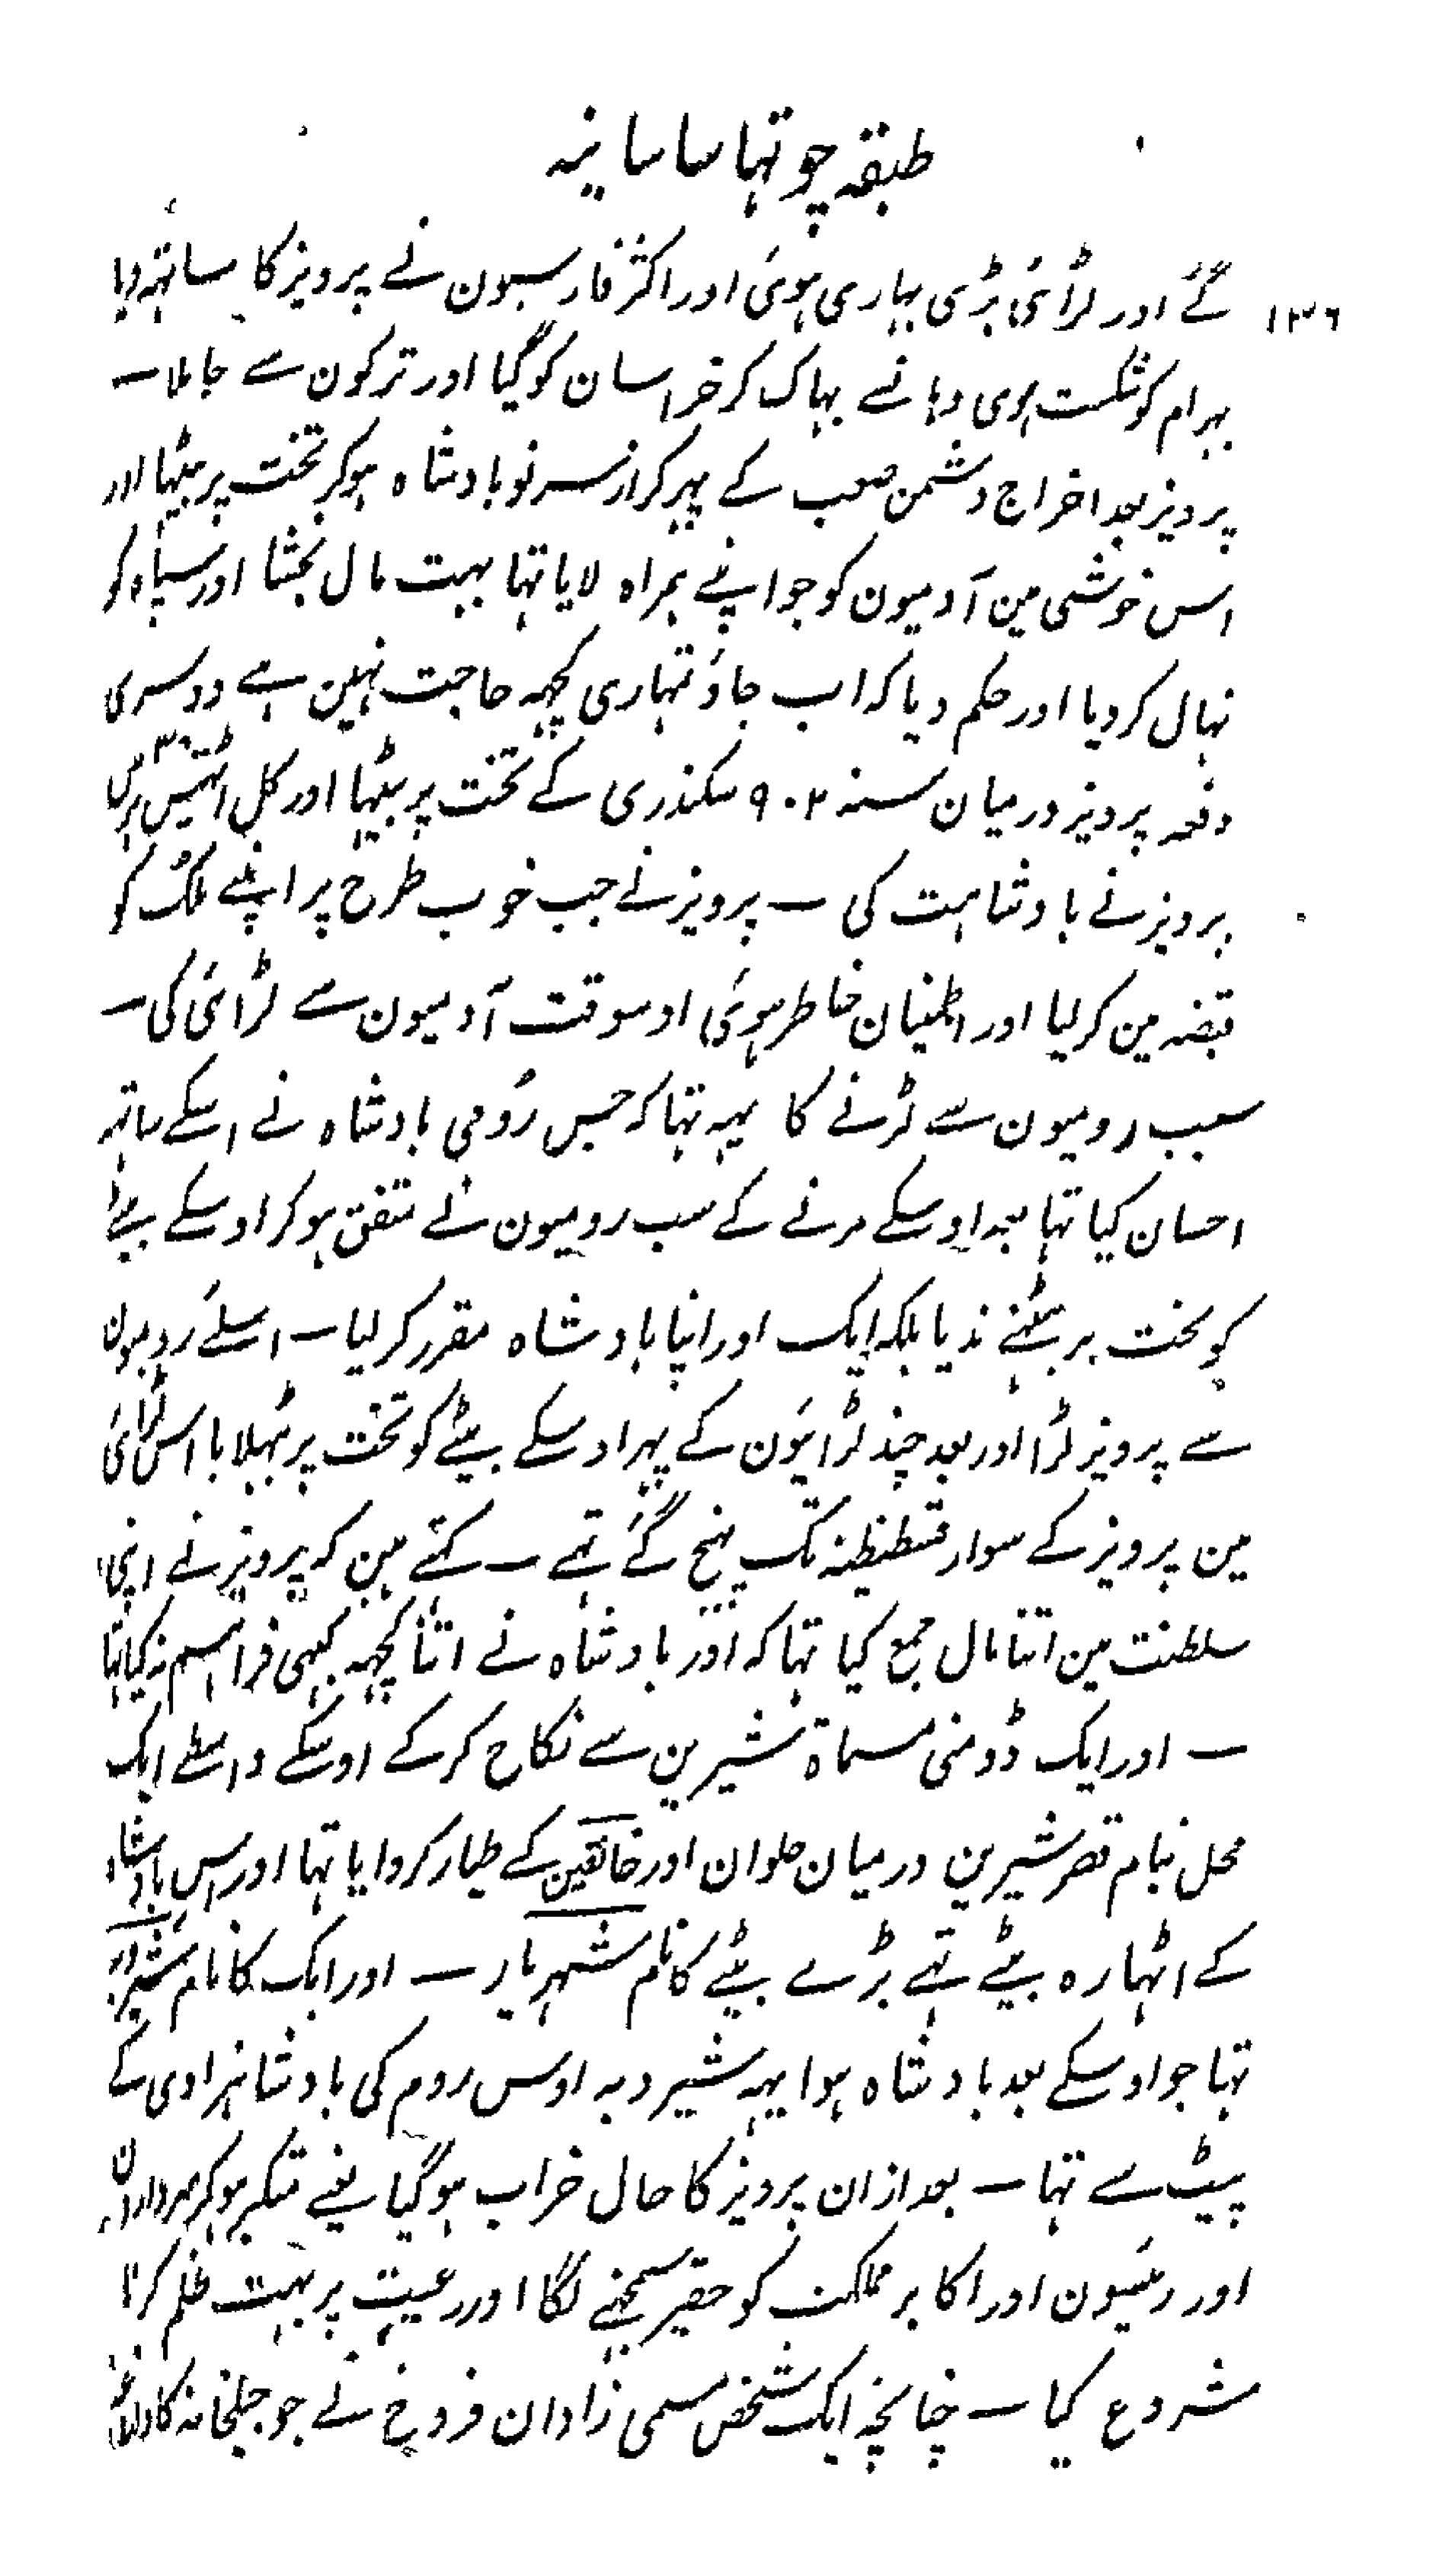 طبقہ چوتہا ساسانیہ
۱۳۶ گئے اور لڑائی بڑی بہاری ہوئی اور اکثر فارسیون نے پرویز کا ساتہہ دیا
بہرام کو شکست ہوی وہانسے بہاگ کر خراسان کو گیا اور ترکون سے جا ملا ــ
پرویز بعد اخراج دشمن صعب کے پہر کر از سر نو بادشاہ ہو کر تخت پر بیٹہا اور
اس خوشی مین آدمیون کو جو اپنے ہمراہ لایا تہا بہت مال بخشا اور سپاہ کو
نہال کر دیا اور حکم دیا کہ اب جاؤ تمہاری کچہہ حاجت نہین ہے دوسری
دفعہ پرویز درمیان سنہ ۹۰۲ سکندری کے تخت پر بیٹہا اور کل اڑتیس ۳۸ برس
پرویز نے بادشاہت کی ــ پرویز نے جب خوب طرح پر اپنے ملک کو
قبضہ مین کر لیا اور اطمینان خاطر ہوئی اوسوقت آدمیون سے لڑائی کی ــ
سبب رومیون سے لڑنے کا یہہ تہا کہ جس رومی بادشاہ نے اسکے ساتہہ
احسان کیا تہا بعد اوسکے مرنے کے سب رومیون نے متفق ہو کر اوسکے بیٹے
کو تخت پر بیٹہنے ندیا بلکہ ایک اور اپنا بادشاہ مقرر کر لیا ــ اسلئے رومیون
سے پرویز لڑا اور بعد چند لڑائیون کے پہر اوسکے بیٹے کو تخت پر بٹہلایا اس لڑائی
مین پرویز کے سوار قسطنطنیہ تک پہنچ گئے تہے ــ کہتے ہین کہ پرویز نے اپنی
سلطنت مین اتنا مال جمع کیا تہا کہ اور بادشاہ نے اتنا کچہہ کبہی فراہم نہ کیا تہا
ــ اور ایک ڈومنی مسماۃ شیرین سے نکاح کر کے اوسکے واسطے ایک
محل بنام قصر شیرین درمیان حلوان اور خانقین کے طیار کروایا تہا اور اس بادشاہ
کے اٹہارہ بیٹے تہے بڑے بیٹے کا نام شہریار ــ اور ایک کا نام شیرویہ
تہا جو اوسکے بعد بادشاہ ہوا یہہ شیرویہ اوس روم کی بادشاہزادی کے
پیٹ سے تہا ــ بعد ازان پرویز کا حال خراب ہو گیا یعنے متکبر ہو کر سرداران
اور رئیسون اور اکابر مملکت کو حقیر سمجہنے لگا اور رعیت پر بہت ظلم کرنا
شروع کیا ــ چنانچہ ایک شخص مسمی زادان فروخ نے جو جیلخانہ کا